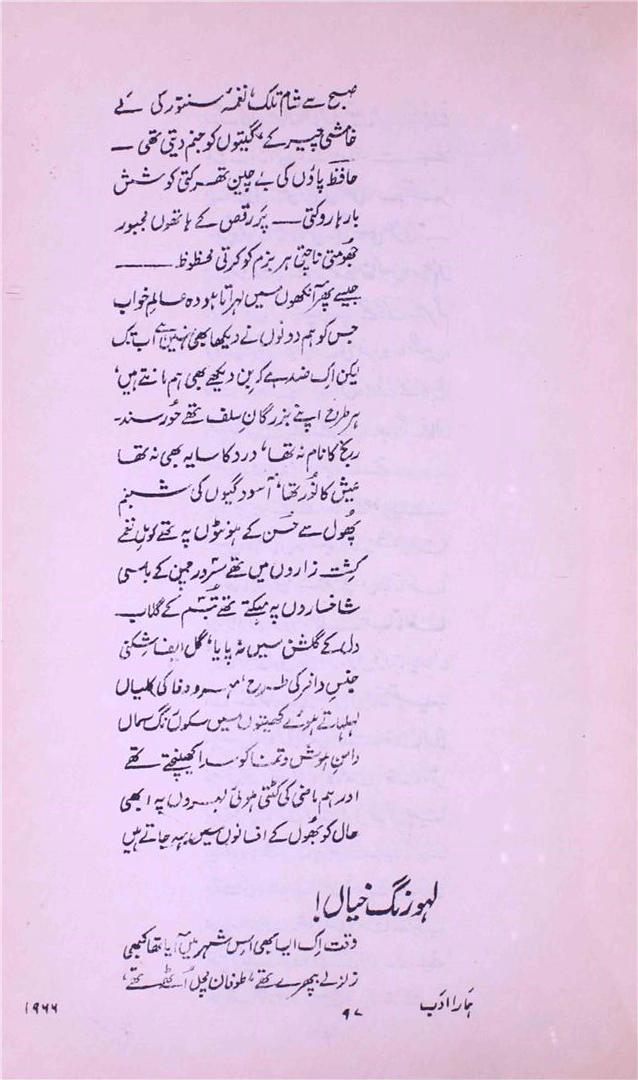 صبح سے شام تلک، نغمۂ سنتور کی لے
خامشی چیر کے، گیتوں کو جنم دیتی تھی —
حافظ پاؤں کی بے چین تھرکتی کوشش
بارہا روکتی — پر رقص کے ہاتھوں مجبور
جھومتی ناچتی ہر بزم کو کرتی محظوظ —
جیسے پھر آنکھوں میں لہراتا ہو وہ عالمِ خواب
جس کو ہم دونوں نے دیکھا بھی نہیں ہے اب تک
لیکن اِک ضد ہے کہ بِن دیکھے بھی ہم مانتے ہیں،
ہر طرح اپنے بزرگانِ سلف تھے خورسند۔
رنج کا نام نہ تھا، درد کا سایہ بھی نہ تھا
عیش کا نُور تھا، آسودگیوں کی شبنم
پھُول سے حُسن کے ہونٹوں پہ تھے کومل نغمے
کِشت زاروں میں تھے سرو و چمن کے باسی
شاخساروں پہ مہکتے تھے تبسّم کے گلاب۔
دل کے گلشن میں نہ پایا، گل
جنسِ کی طرح، مہر و وفا کی کلیاں
لہلہاتے ہوئے کھیتوں میں سکوں رنگ سماں
دامنِ ہوش و تمنا کو سدا کھینچتے تھے
اور ہم ماضی کی کٹتی ہوئی لہروں پہ ابھی
حال کو بھُول کے افسانوں میں بہہ جاتے ہیں
لہو رنگ خیال!
وقت اِک ایسا بھی اس شہر میں آیا تھا کبھی
زلزلے بپھرے تھے، طوفان مچل اُٹھے تھے،
ہمارا ادب
۹۷
۱۹۶۶